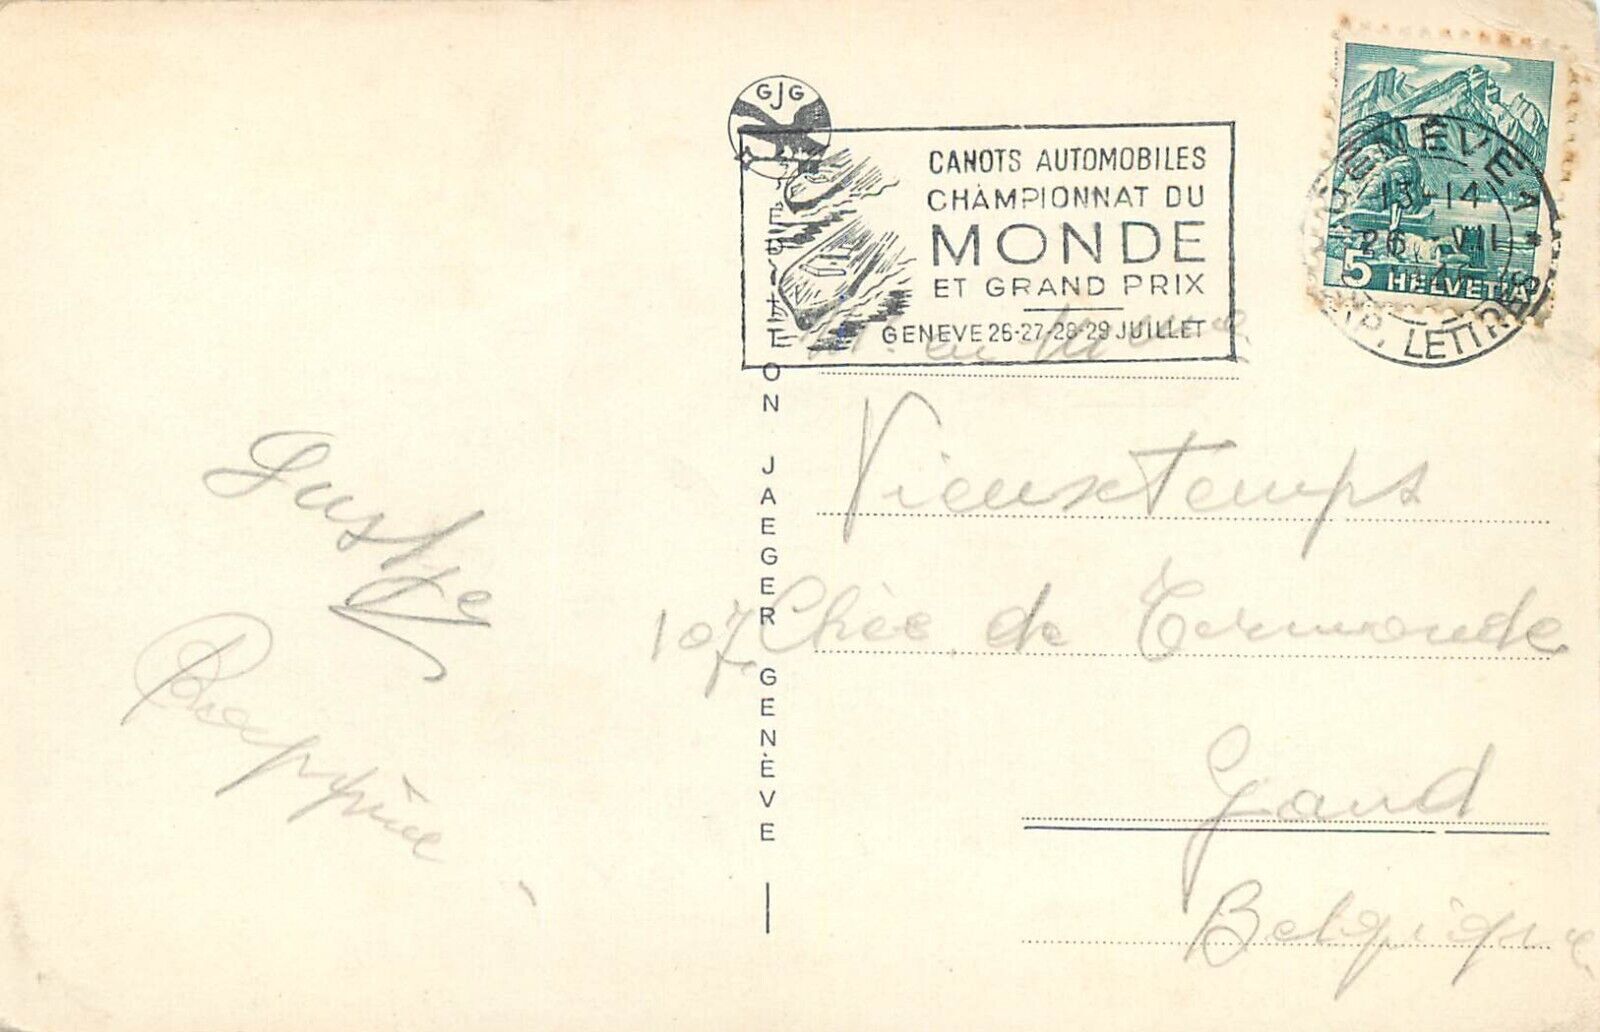 GJG
CANOTS AUTOMOBILES
CHAMPIONNAT DU
MONDE
ET GRAND PRIX
GENEVE 26-27-28-29 JUILLET
GENÈVE 1
13-14
26 VII
EXP. LETTRES
5 HELVETIA
ÉDITION JAEGER GENÈVE
M. et
Vieuxtemps
107 Chée de Termonde
Gand
Belgique